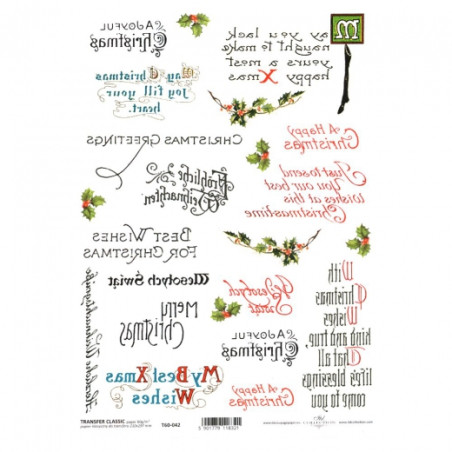 A JOYFUL
Christmas
May you lack
naught to make
yours a most
happy Xmas
May Christmas
Joy fill your
heart.
CHRISTMAS GREETINGS
A Happy
Christmas
Fröhliche
Weihnachten
Just to send
you our best
Wishes at this
Christmastime
BEST WISHES
FOR CHRISTMAS
Wesołych Świąt
Wesołych
Świąt
Merry
Christmas
With
Christmas
Wishes
kind and true,
That all
lifes blessings
come to you
A JOYFUL
Christmas
My Best Xmas
Wishes
A Happy
Christmas
TRANSFER CLASSIC
T60-042